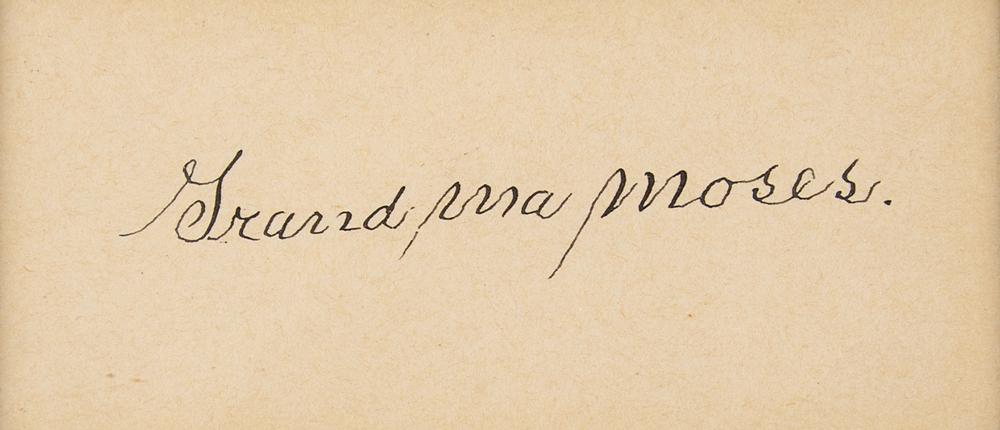 Grand ma Moses.